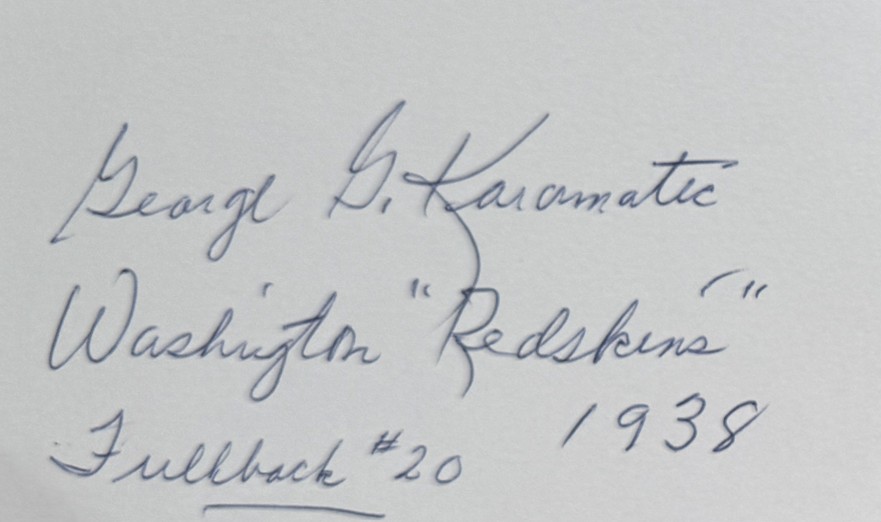 George G. Karamatic
Washington "Redskins"
Fullback #20 1938